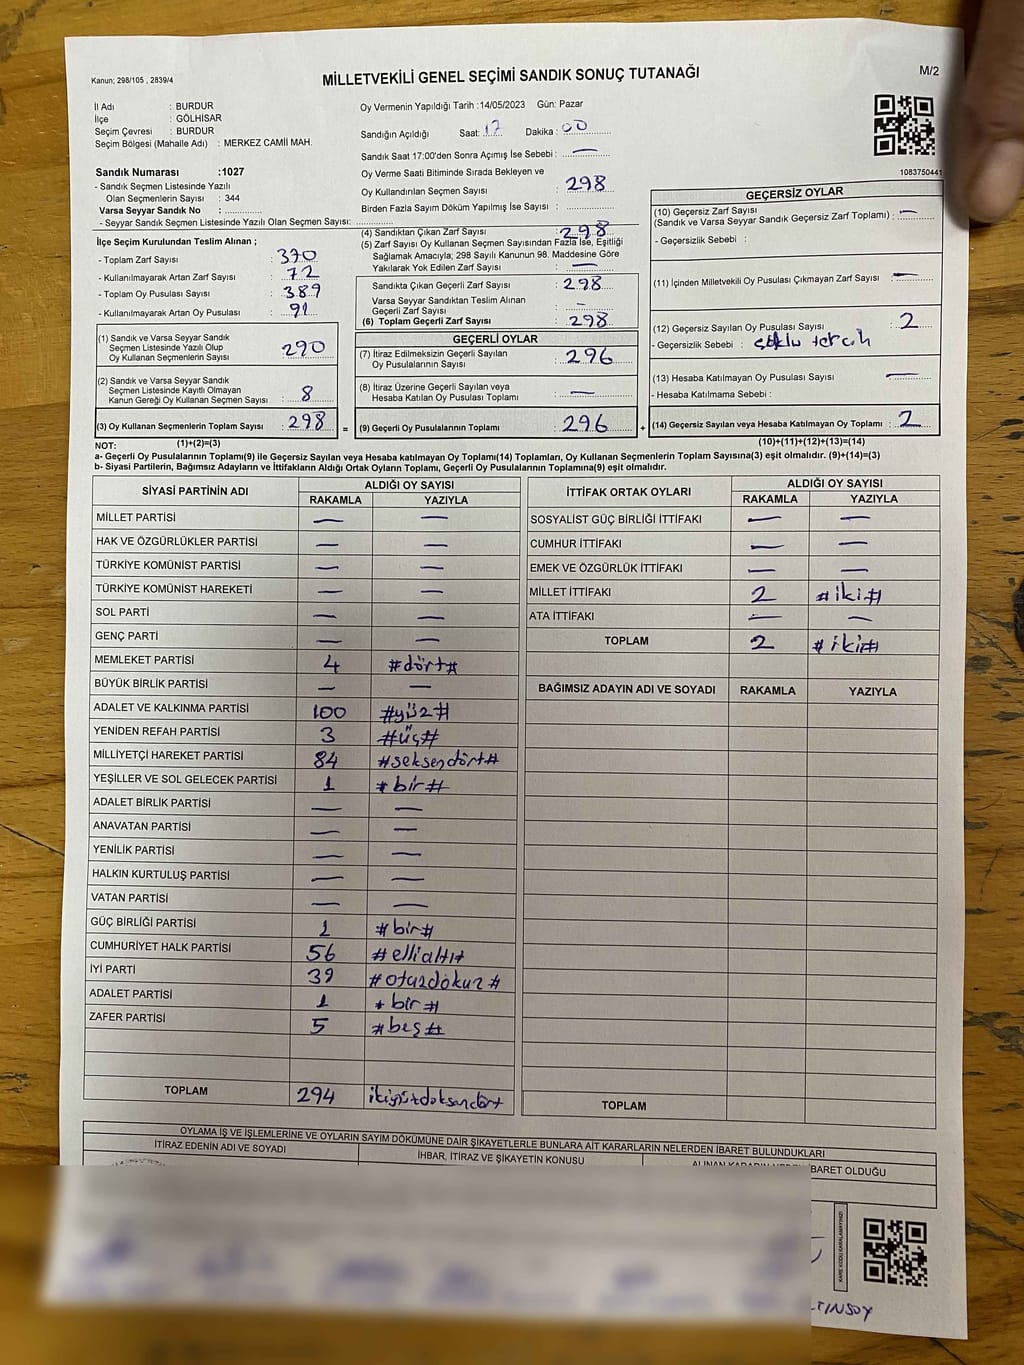 Kanun; 298/105 , 2839/4
MİLLETVEKİLİ GENEL SEÇİMİ SANDIK SONUÇ TUTANAĞI
M/2
İl Adı : BURDUR
İlçe : GÖLHİSAR
Seçim Çevresi : BURDUR
Seçim Bölgesi (Mahalle Adı) : MERKEZ CAMİİ MAH.
Oy Vermenin Yapıldığı Tarih :14/05/2023 Gün: Pazar
Sandığın Açıldığı Saat: 17 Dakika : 00
Sandık Saat 17:00'den Sonra Açımış İse Sebebi : —
Oy Verme Saati Bitiminde Sırada Bekleyen ve
Oy Kullandırılan Seçmen Sayısı : 298
Birden Fazla Sayım Döküm Yapılmış İse Sayısı :
1083750441
Sandık Numarası :1027
- Sandık Seçmen Listesinde Yazılı
Olan Seçmenlerin Sayısı : 344
Varsa Seyyar Sandık No :
- Seyyar Sandık Seçmen Listesinde Yazılı Olan Seçmen Sayısı:
İlçe Seçim Kurulundan Teslim Alınan ;
- Toplam Zarf Sayısı : 370
- Kullanılmayarak Artan Zarf Sayısı : 72
- Toplam Oy Pusulası Sayısı : 389
- Kullanılmayarak Artan Oy Pusulası : 91
(1) Sandık ve Varsa Seyyar Sandık
Seçmen Listesinde Yazılı Olup
Oy Kullanan Seçmenlerin Sayısı : 290
(2) Sandık ve Varsa Seyyar Sandık
Seçmen Listesinde Kayıtlı Olmayan
Kanun Gereği Oy Kullanan Seçmen Sayısı : 8
(3) Oy Kullanan Seçmenlerin Toplam Sayısı : 298 =
(4) Sandıktan Çıkan Zarf Sayısı : 298
(5) Zarf Sayısı Oy Kullanan Seçmen Sayısından Fazla İse, Eşitliği
Sağlamak Amacıyla; 298 Sayılı Kanunun 98. Maddesine Göre
Yakılarak Yok Edilen Zarf Sayısı : —
Sandıkta Çıkan Geçerli Zarf Sayısı : 298
Varsa Seyyar Sandıktan Teslim Alınan
Geçerli Zarf Sayısı : —
(6) Toplam Geçerli Zarf Sayısı : 298
GEÇERLİ OYLAR
(7) İtiraz Edilmeksizin Geçerli Sayılan
Oy Pusulalarının Sayısı : 296
(8) İtiraz Üzerine Geçerli Sayılan veya
Hesaba Katılan Oy Pusulası Toplamı : —
(9) Geçerli Oy Pusulalarının Toplamı : 296 +
GEÇERSİZ OYLAR
(10) Geçersiz Zarf Sayısı : —
(Sandık ve Varsa Seyyar Sandık Geçersiz Zarf Toplamı)
- Geçersizlik Sebebi :
(11) İçinden Milletvekili Oy Pusulası Çıkmayan Zarf Sayısı : —
(12) Geçersiz Sayılan Oy Pusulası Sayısı : 2
- Geçersizlik Sebebi : tercih
(13) Hesaba Katılmayan Oy Pusulası Sayısı : —
- Hesaba Katılmama Sebebi :
(14) Geçersiz Sayılan veya Hesaba Katılmayan Oy Toplamı : 2
NOT: (1)+(2)=(3)
(10)+(11)+(12)+(13)=(14)
a- Geçerli Oy Pusulalarının Toplamı(9) ile Geçersiz Sayılan veya Hesaba katılmayan Oy Toplamı(14) Toplamları, Oy Kullanan Seçmenlerin Toplam Sayısına(3) eşit olmalıdır. (9)+(14)=(3)
b- Siyasi Partilerin, Bağımsız Adayların ve İttifakların Aldığı Ortak Oyların Toplamı, Geçerli Oy Pusulalarının Toplamına(9) eşit olmalıdır.
SİYASİ PARTİNİN ADI ALDIĞI OY SAYISI
RAKAMLA YAZIYLA
MİLLET PARTİSİ — —
HAK VE ÖZGÜRLÜKLER PARTİSİ — —
TÜRKİYE KOMÜNİST PARTİSİ — —
TÜRKİYE KOMÜNİST HAREKETİ — —
SOL PARTİ — —
GENÇ PARTİ — —
MEMLEKET PARTİSİ 4 #dört#
BÜYÜK BİRLİK PARTİSİ — —
ADALET VE KALKINMA PARTİSİ 100 #yüz#
YENİDEN REFAH PARTİSİ 3 #üç#
MİLLİYETÇİ HAREKET PARTİSİ 84 #seksendört#
YEŞİLLER VE SOL GELECEK PARTİSİ 1 #bir#
ADALET BİRLİK PARTİSİ — —
ANAVATAN PARTİSİ — —
YENİLİK PARTİSİ — —
HALKIN KURTULUŞ PARTİSİ — —
VATAN PARTİSİ — —
GÜÇ BİRLİĞİ PARTİSİ 1 #bir#
CUMHURİYET HALK PARTİSİ 56 #ellialtı
İYİ PARTİ 39 #otuzdokuz#
ADALET PARTİSİ 1 #bir#
ZAFER PARTİSİ 5 #beş#
TOPLAM 294 ikiyüzdoksandört
İTTİFAK ORTAK OYLARI ALDIĞI OY SAYISI
RAKAMLA YAZIYLA
SOSYALİST GÜÇ BİRLİĞİ İTTİFAKI — —
CUMHUR İTTİFAKI — —
EMEK VE ÖZGÜRLÜK İTTİFAKI — —
MİLLET İTTİFAKI 2 #iki#
ATA İTTİFAKI — —
TOPLAM 2 #iki#
BAĞIMSIZ ADAYIN ADI VE SOYADI RAKAMLA YAZIYLA
TOPLAM
OYLAMA İŞ VE İŞLEMLERİNE VE OYLARIN SAYIM DÖKÜMÜNE DAİR ŞİKAYETLERLE BUNLARA AİT KARARLARIN NELERDEN İBARET BULUNDUKLARI
İTİRAZ EDENİN ADI VE SOYADI
İHBAR, İTİRAZ VE ŞİKAYETİN KONUSU
ALINAN İBARET OLDUĞU
KARE KODU KARALAMAYINIZ!
TINSOY